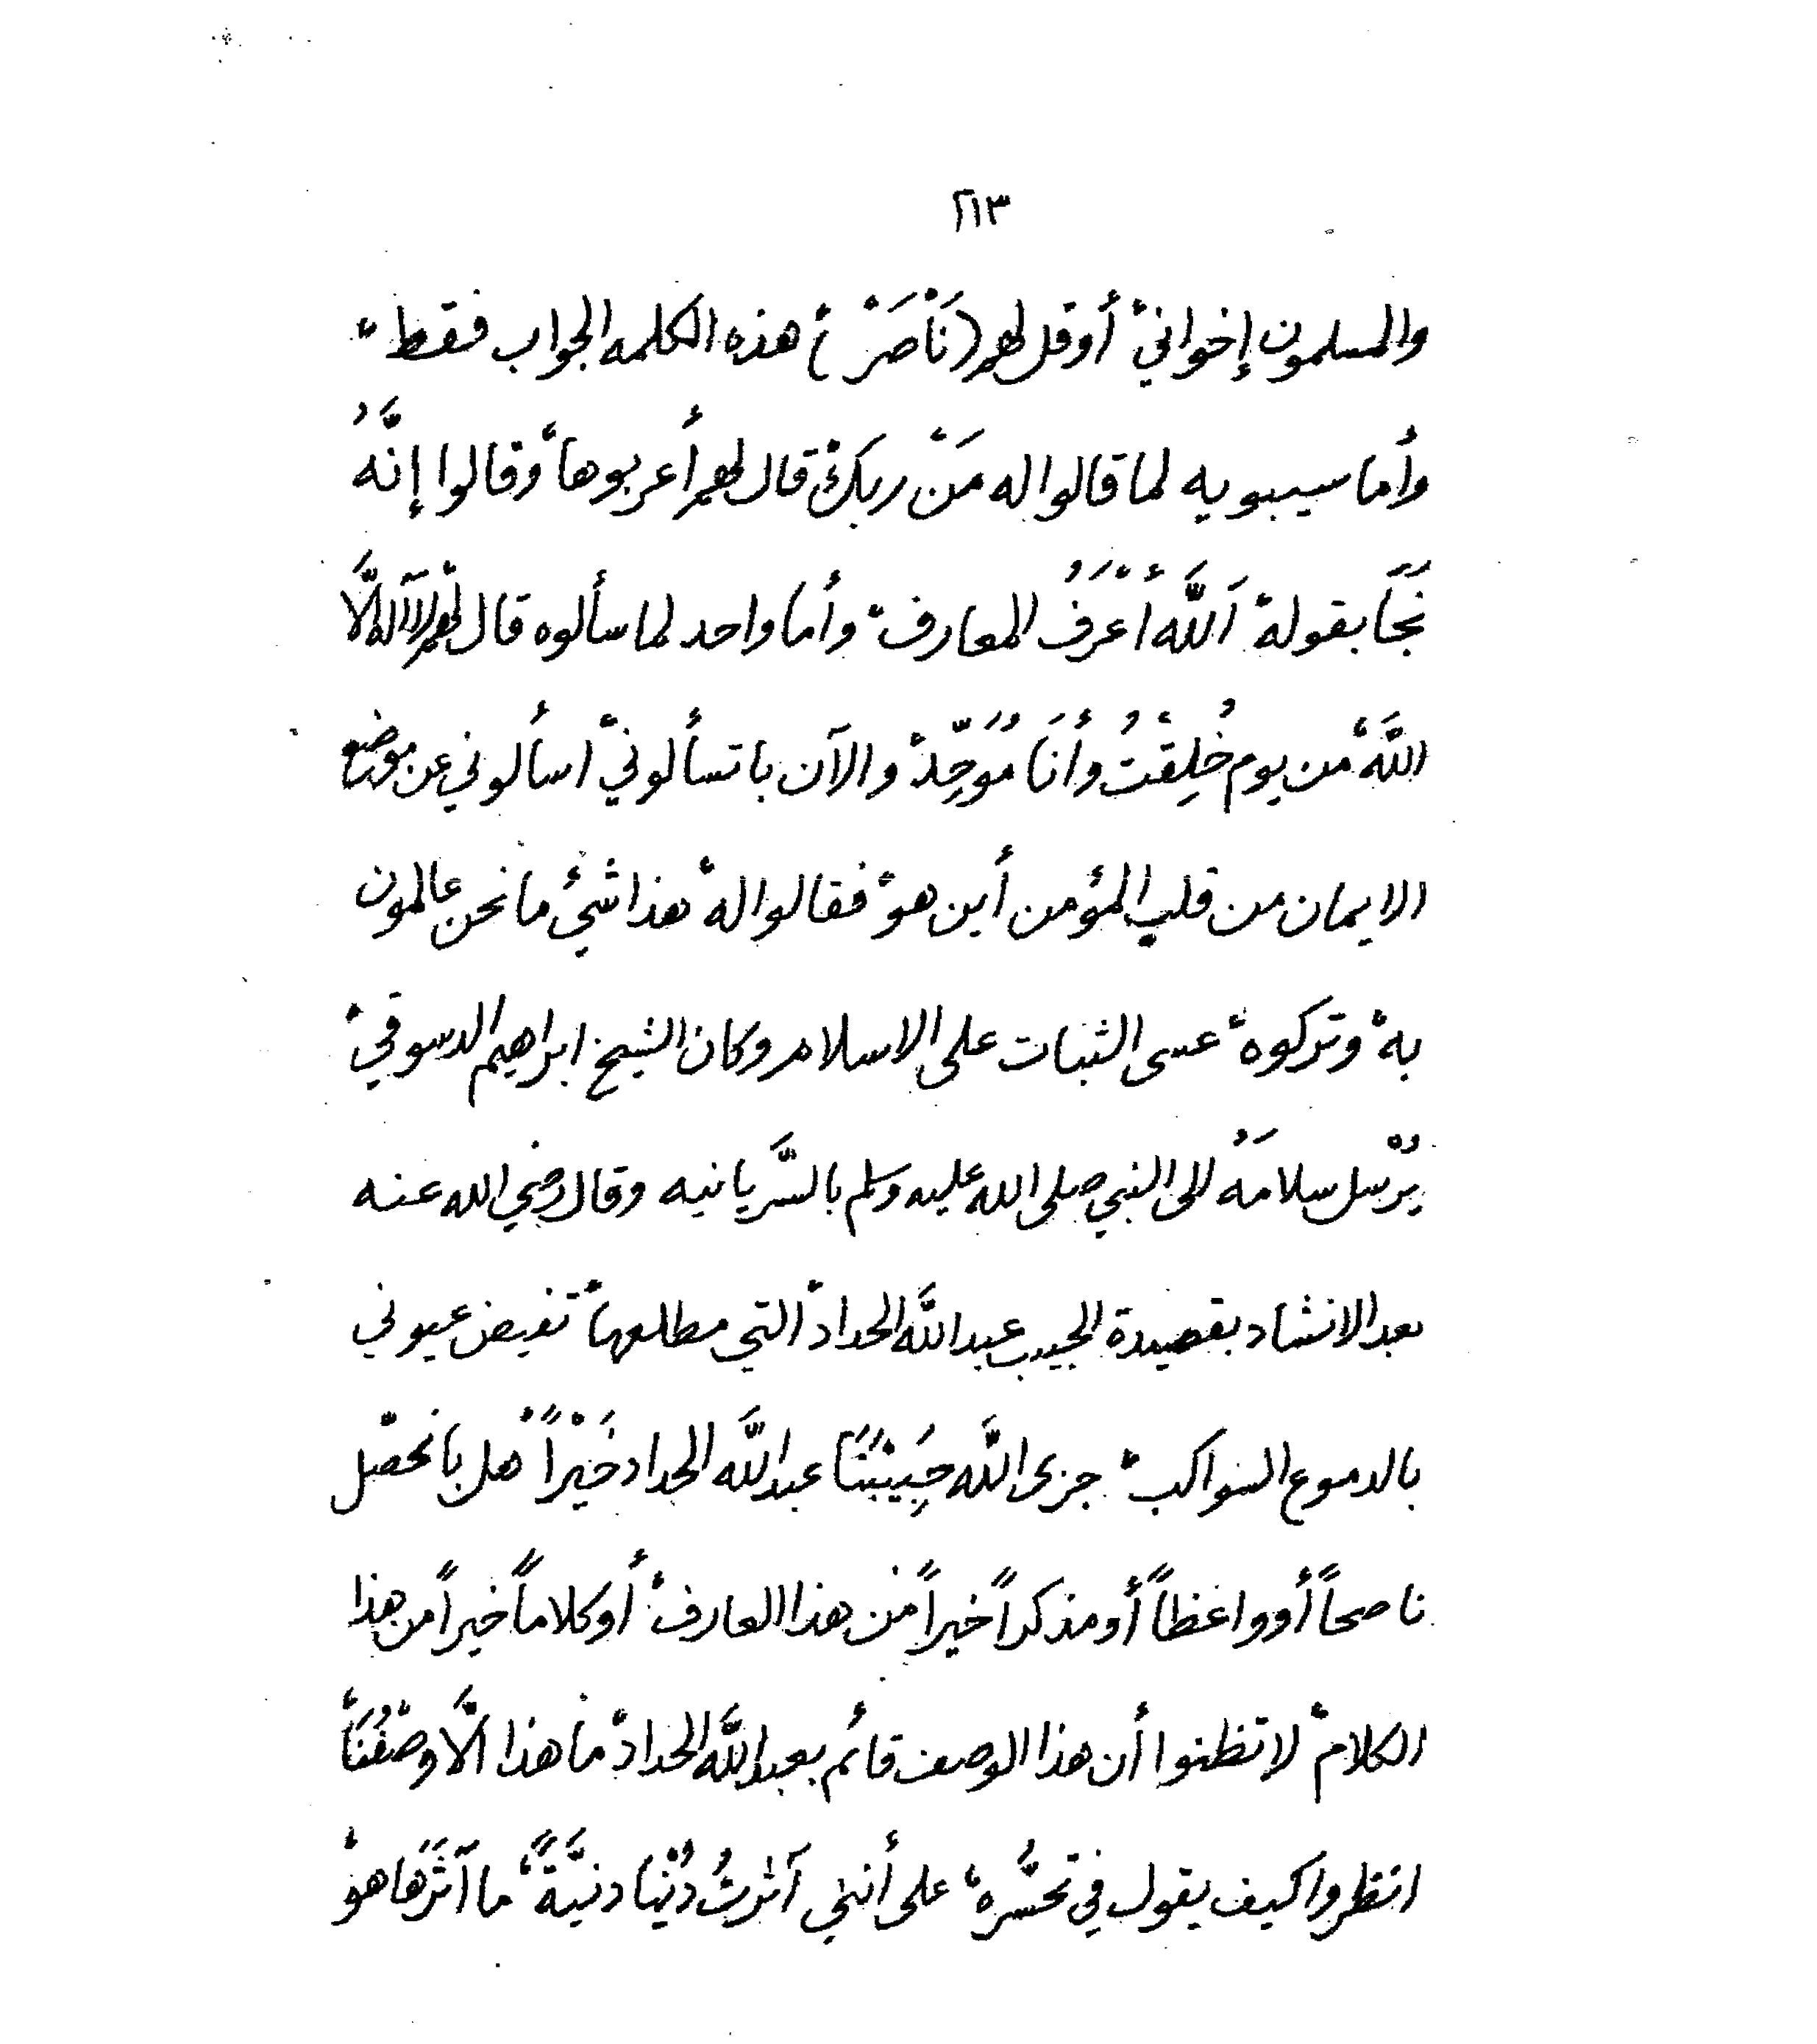 ٢١٣
والمسلمون إخواني، أوقل لهم (نَاْصَرْ) هذه الكلمه الجواب فقط،
وأما سيبويه لما قالوا له مَن ربك، قال لهم أعربوها، وقالوا إنَّهُ
نَجَا بقوله، اَللَّه أَعْرَفُ المعارف، وأما واحد لما سألوه قال لهم لاآلهَ الَّا
اللَّه، من يوم خُلِقْتُ وأَنَا مُوَحِّد، والآن باتسألوني، اسألوني عن موضع
الايمان من قلب المؤمن أين هو، فقالوا له، هذا شيُ ما نحن عالمون
به، وتركوه، عسى الثبات على الاسلام وكان الشيخ ابراهيم الدسوقي،
يُرْسل سلامَهُ الى النبي صلى الله عليه وسلم بالسَّريانيه وقال رضي الله عنه
بعد الانشاد بقصيدة الحبيب عبداللَّه الحداد، التي مطلعها، تفيض عيوني
بالدموع السواكب، جزى اللَّه حَبِيْبَنَا عبداللَّه الحداد خَيْراً، هل بانحصّل
ناصحاً أوواعظاً أومذكراً خيراً من هذا العارف، أوكلاماً خيراً من هذا
الكلام، لاتظنوا أن هذا الوصف قائم بعبداللَّه الحداد، ماهذا الَّا وصْفُنَا،
انظروا كيف يقول في تحسُّره، على أنني آثرتُ دُنْيا دنيَّةً، ما آثَرَها هو،